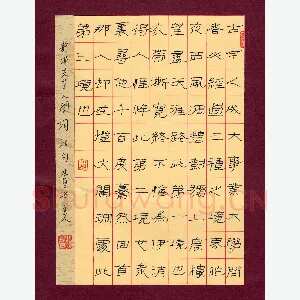 古今之成大事業大學問
者必經過三種之境界昨
夜西風凋碧樹獨上高樓
望盡天涯路此第一境也
衣帶漸寬終不悔為伊消
得人憔悴此第二境也眾
裏尋他千百度驀然回首
那人卻在燈火闌珊處此
第三境也
人間詞話